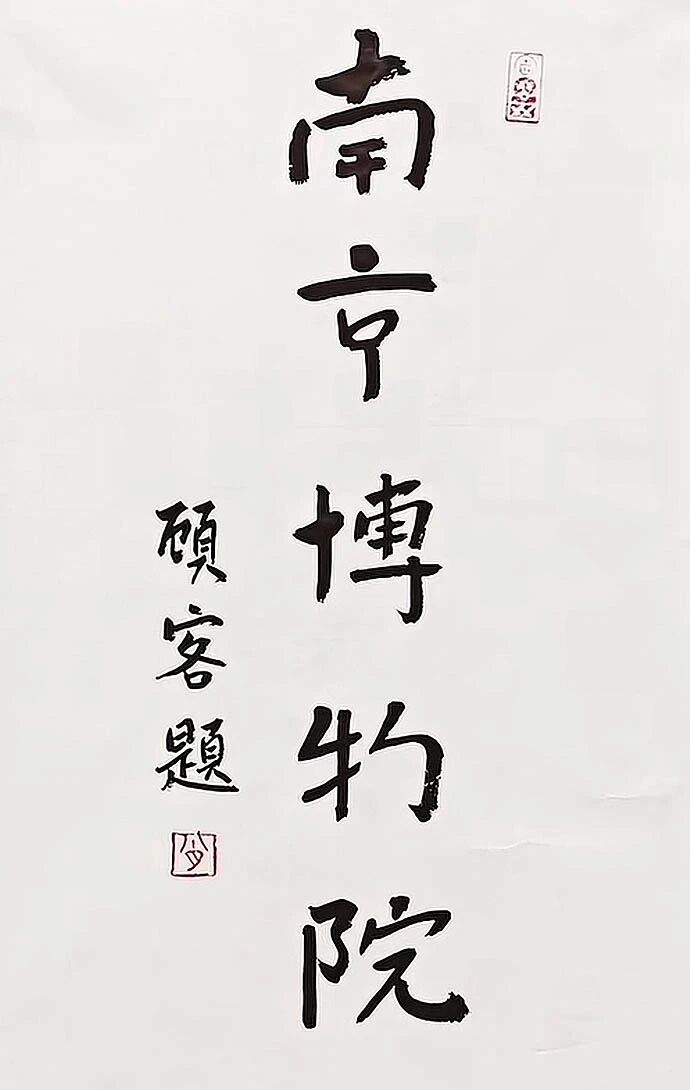 南京博物院
顾客題